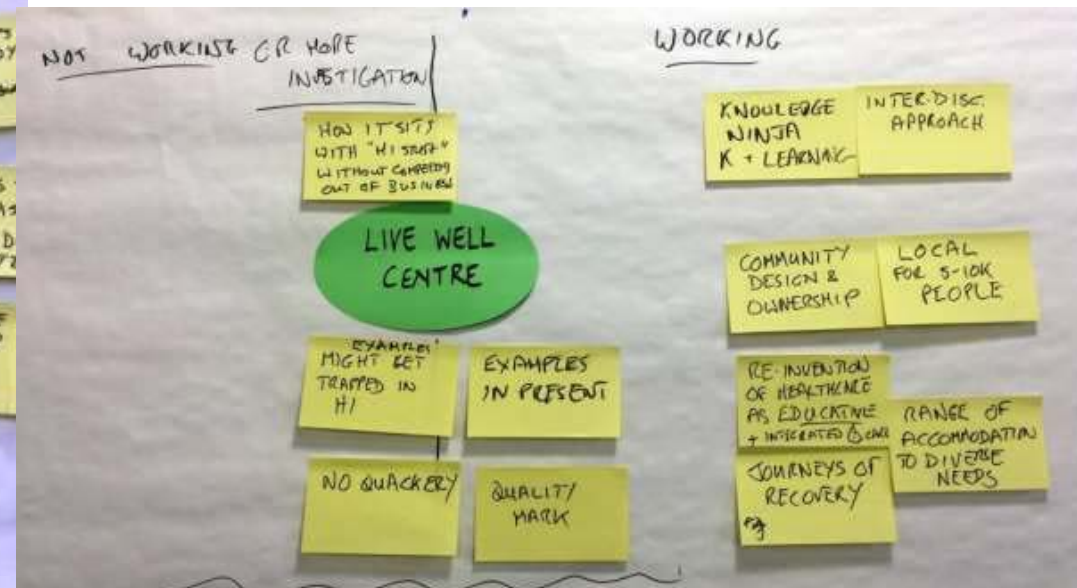 NOT WORKING OR MORE
INVESTIGATION
HOW IT SITS
WITH "H1 STUFF"
WITHOUT COMPETING
OUT OF BUSINESS
LIVE WELL
CENTRE
EXAMPLES
MIGHT GET
TRAPPED IN
H1
EXAMPLES
IN PRESENT
NO QUACKERY
QUALITY
MARK
WORKING
KNOWLEDGE
NINJA
K + LEARNING
INTER-DISC.
APPROACH
COMMUNITY
DESIGN &
OWNERSHIP
LOCAL
FOR 5-10K
PEOPLE
RE-INVENTION
OF HEALTHCARE
AS EDUCATIVE
+ INTEGRATED CARE
RANGE OF
ACCOMMODATION
TO DIVERSE
NEEDS
JOURNEYS OF
RECOVERY